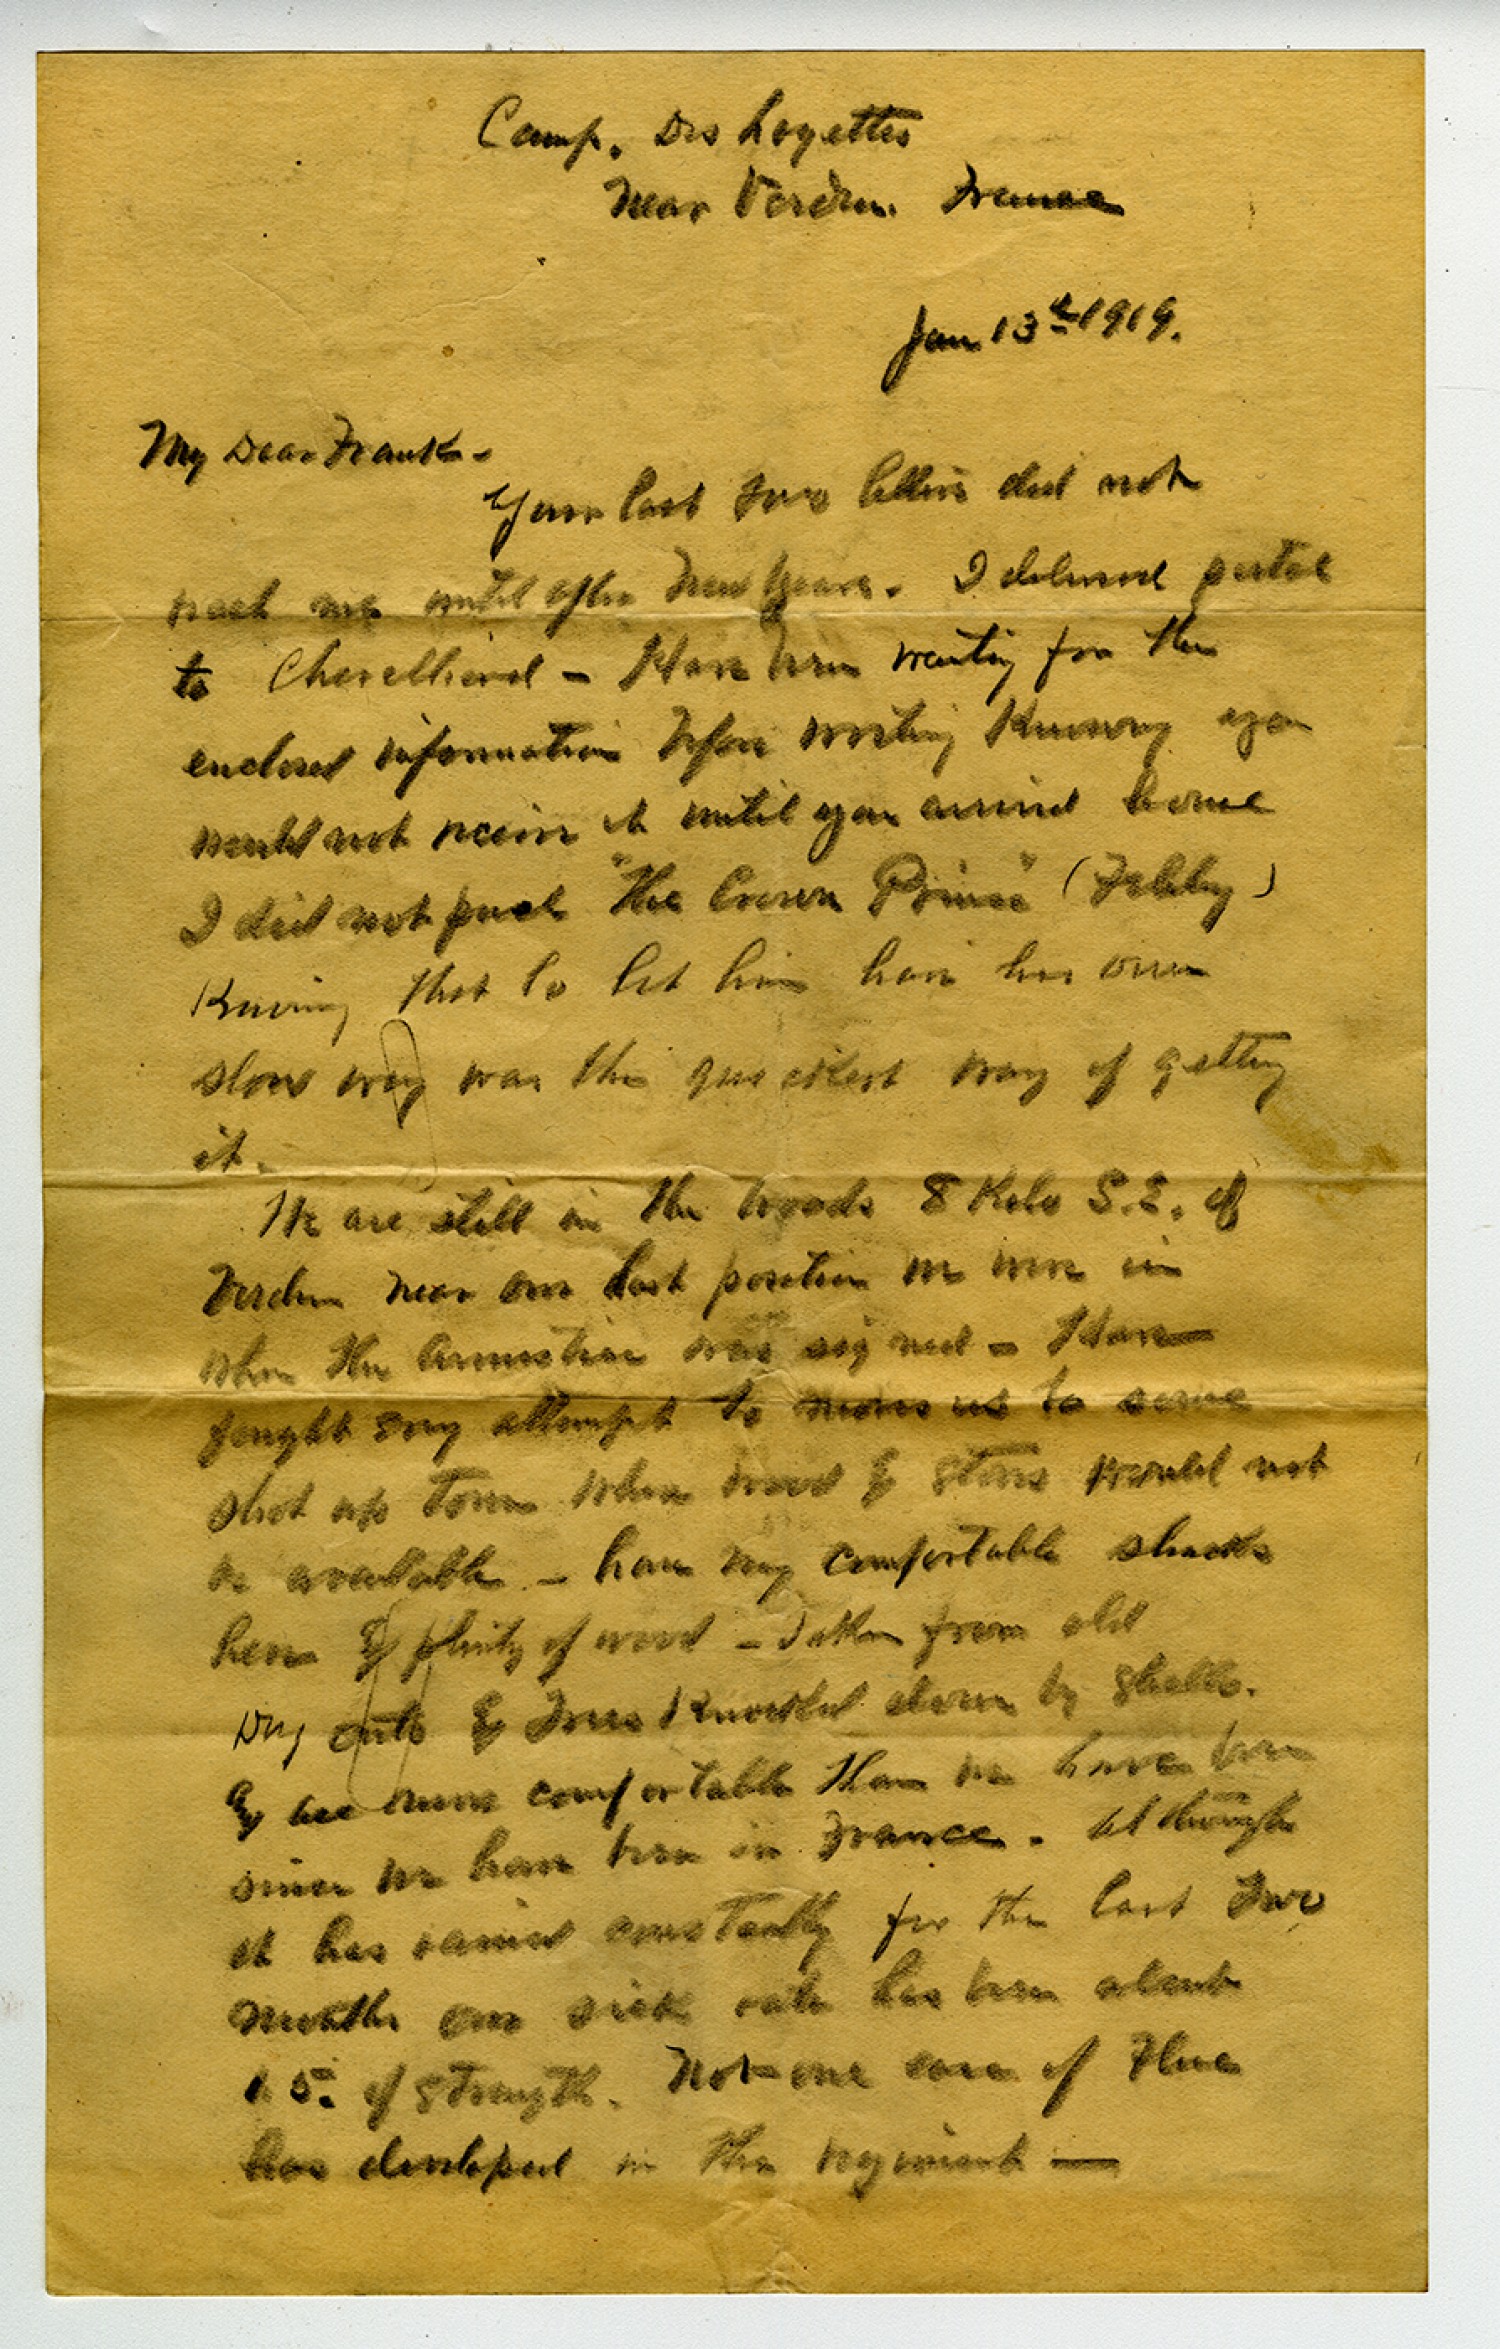 Camp. Des Logettes
Near Verdun. France
Jan 13th 1919.
My Dear Frank -
Your last two letters did not
reach me until after New Years. I delivered postal
to - Have been waiting for the
enclosed information before writing Knowing you
would not receive it until you arrived home
I did not push "The Crown Prince" ( )
Knowing that to let him have his own
slow way was the quickest way of getting
it.
We are still in the woods 8 Kilo S.E. of
Verdun near our last position we were in
when the Armistice was signed - Have
fought every attempt to move us to some
shot up town where wood & stoves would not
be available - have very comfortable shacks
here & plenty of wood - Taken from old
Dug outs & Trees Knocked down by shells.
& are more comfortable than we have been
since we have been in France. Although
it has rained constantly for the last two
months our sick rate has been about
1.5. of strength. Not one case of Flue
has developed in the regiment —